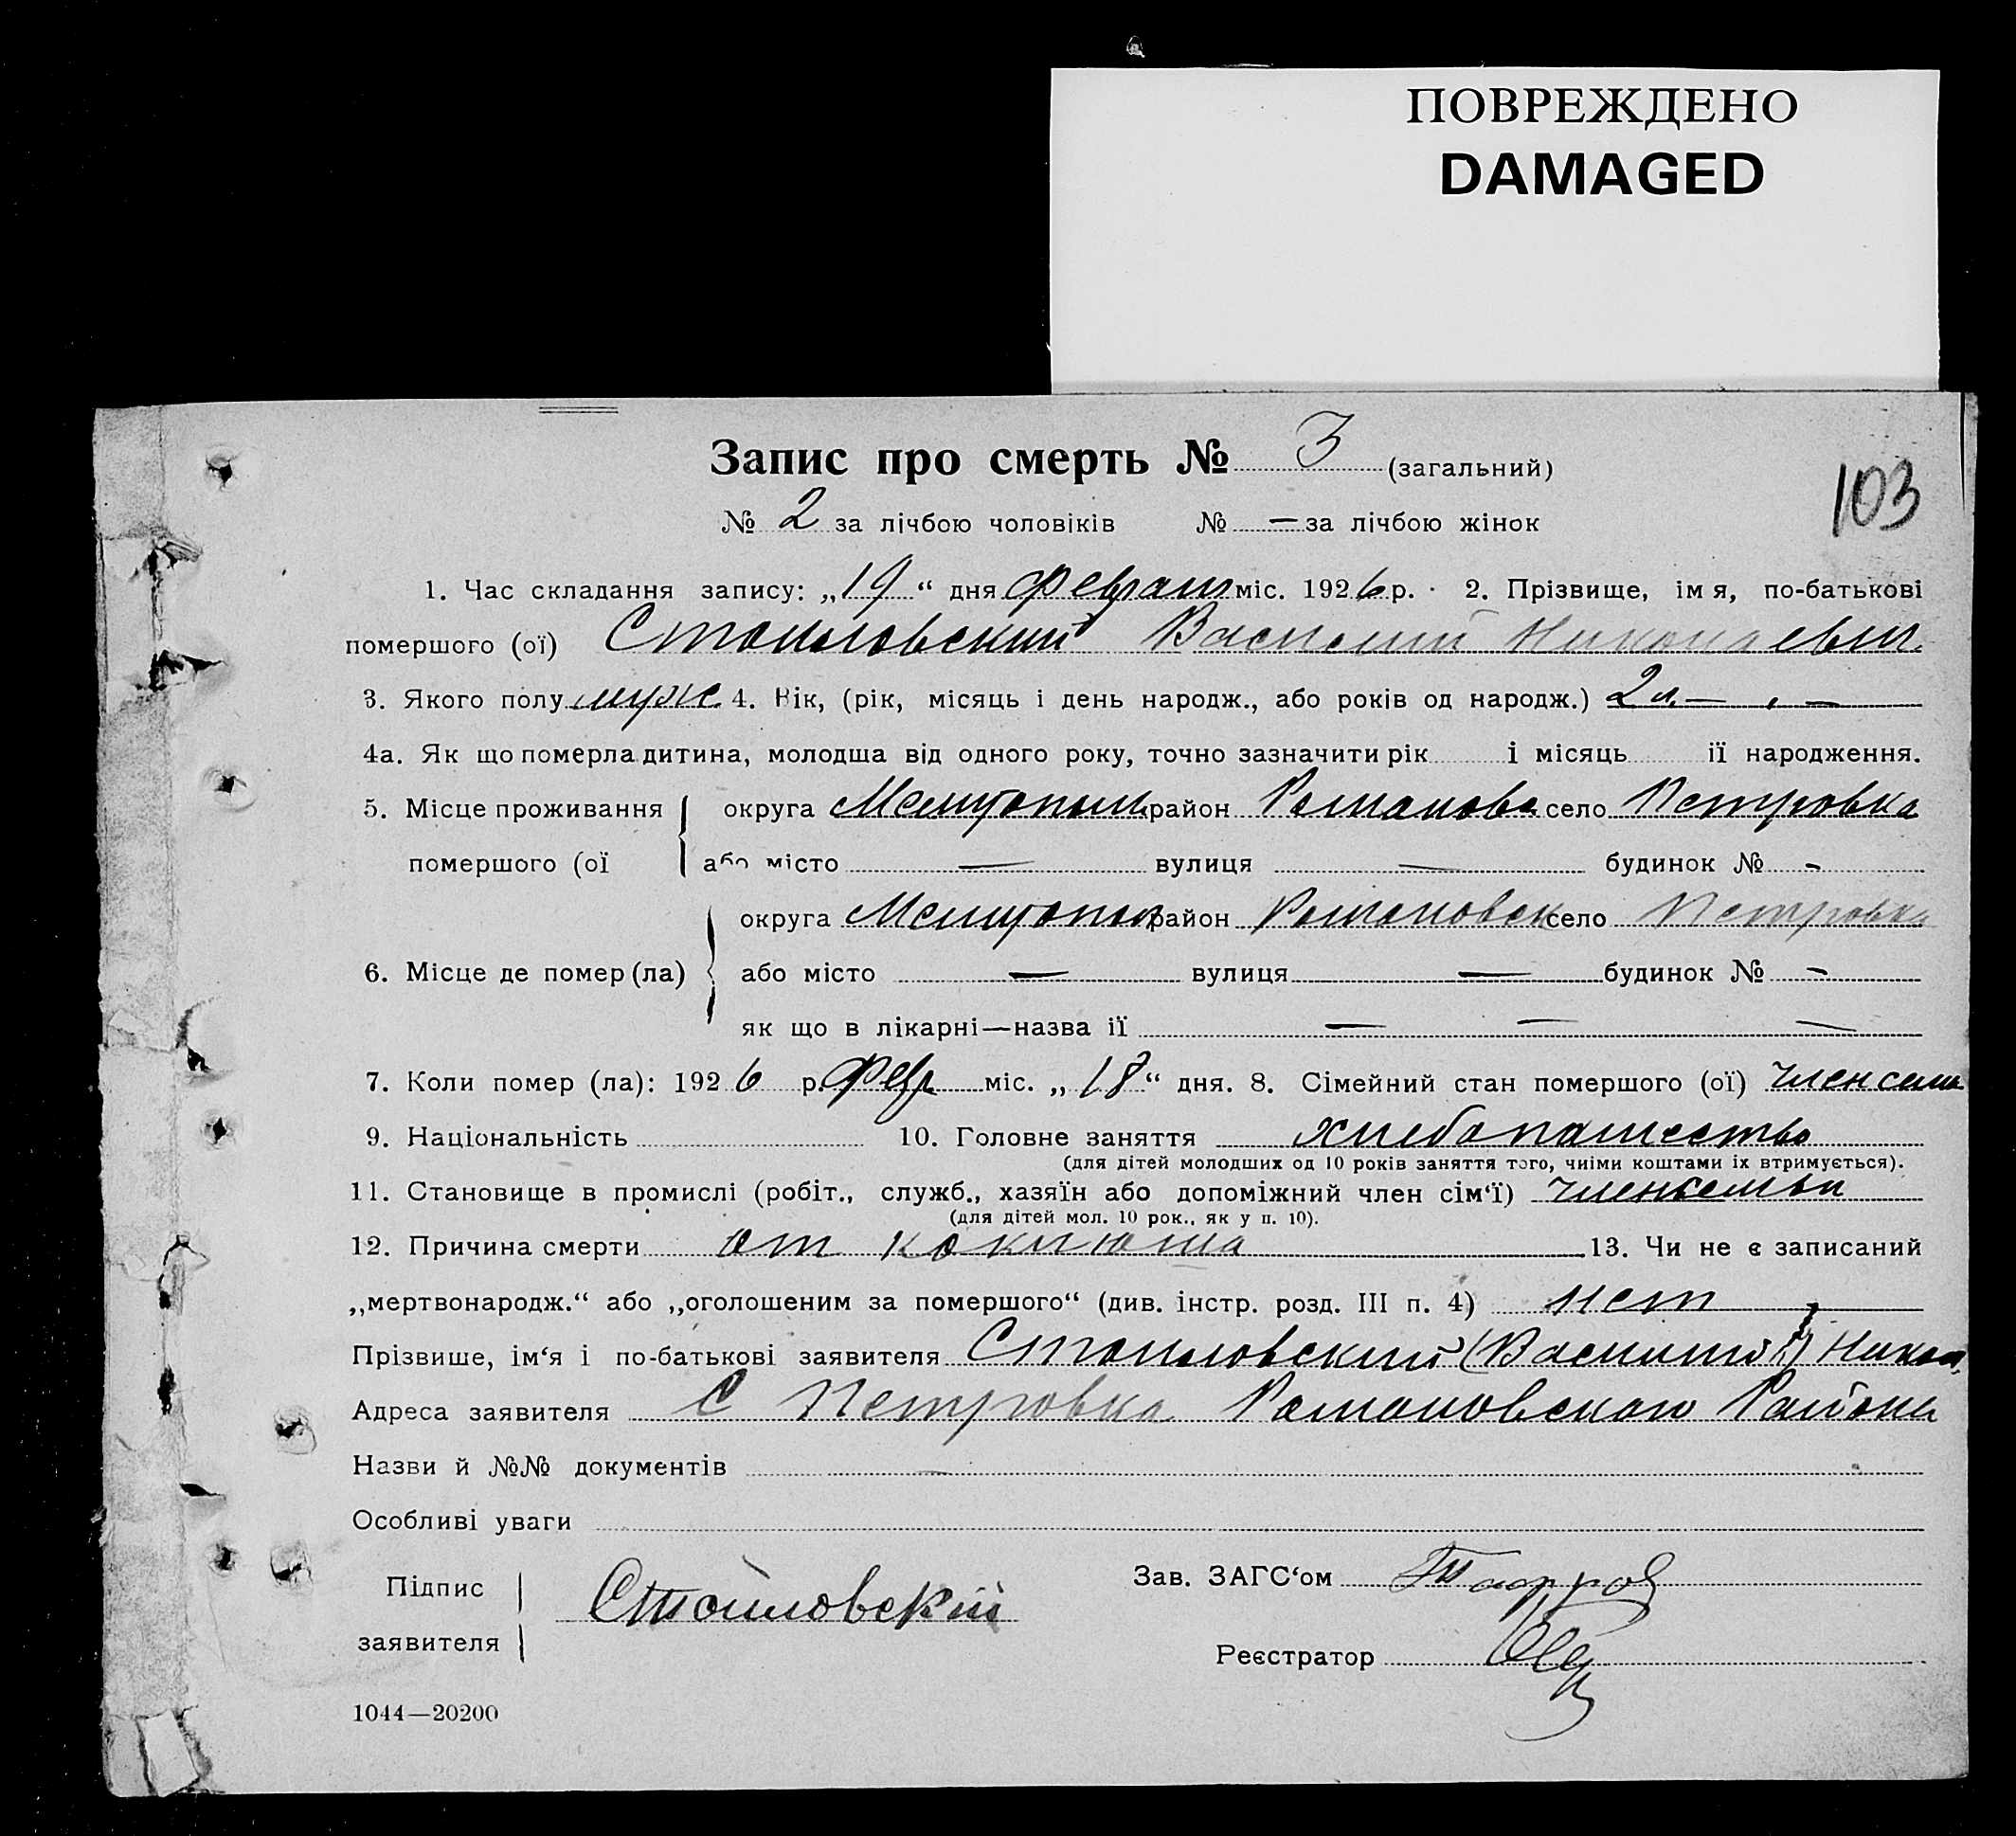 ПОВРЕЖДЕНО
DAMAGED
Запис про смерть № 3 (загальний)
103
№ 2 за лічбою чоловіків № — за лічбою жінок
1. Час складання запису: „19“ дня февраля міс. 1926 р. 2. Прізвище, ім я, по-батькові
помершого (ої) Стоиловский Василий Николаевич
3. Якого полу муж 4. Вік, (рік, місяць і день народж., або років од народж.) 2 л. — , —
4а. Як що померла дитина, молодша від одного року, точно зазначити рік і місяць ії народження.
5. Місце проживання округа Мелитопол район Романовс село Петровка
помершого (ої або місто — вулиця — будинок № -
округа Мелитопол район Романовск село Петровка
6. Місце де помер (ла) або місто — вулиця — будинок № -
як що в лікарні—назва ії — — —
7. Коли помер (ла): 1926 р. Февр міс. „18“ дня. 8. Сімейний стан помершого (ої) член семи
9. Національність 10. Головне заняття хлебопашество
(для дітей молодших од 10 років заняття того, чиіми коштами іх втримується).
11. Становище в промислі (робіт., служб., хазяїн або допоміжний член сім‘ї) член семьи
(для дітей мол. 10 рок., як у п. 10).
12. Причина смерти от коклюша 13. Чи не є записаний
„мертвонародж.“ або „оголошеним за помершого“ (див. інстр. розд. III п. 4) нет
Прізвише, ім‘я і по-батькові заявителя Стоиловский (Василий) Никол
Адреса заявителя С Петровка Романовского Района
Назви й №№ документів —
Особливі уваги
Підпис Зав. ЗАГС‘ом
заявителя Стоиловский
Реєстратор
1044—20200